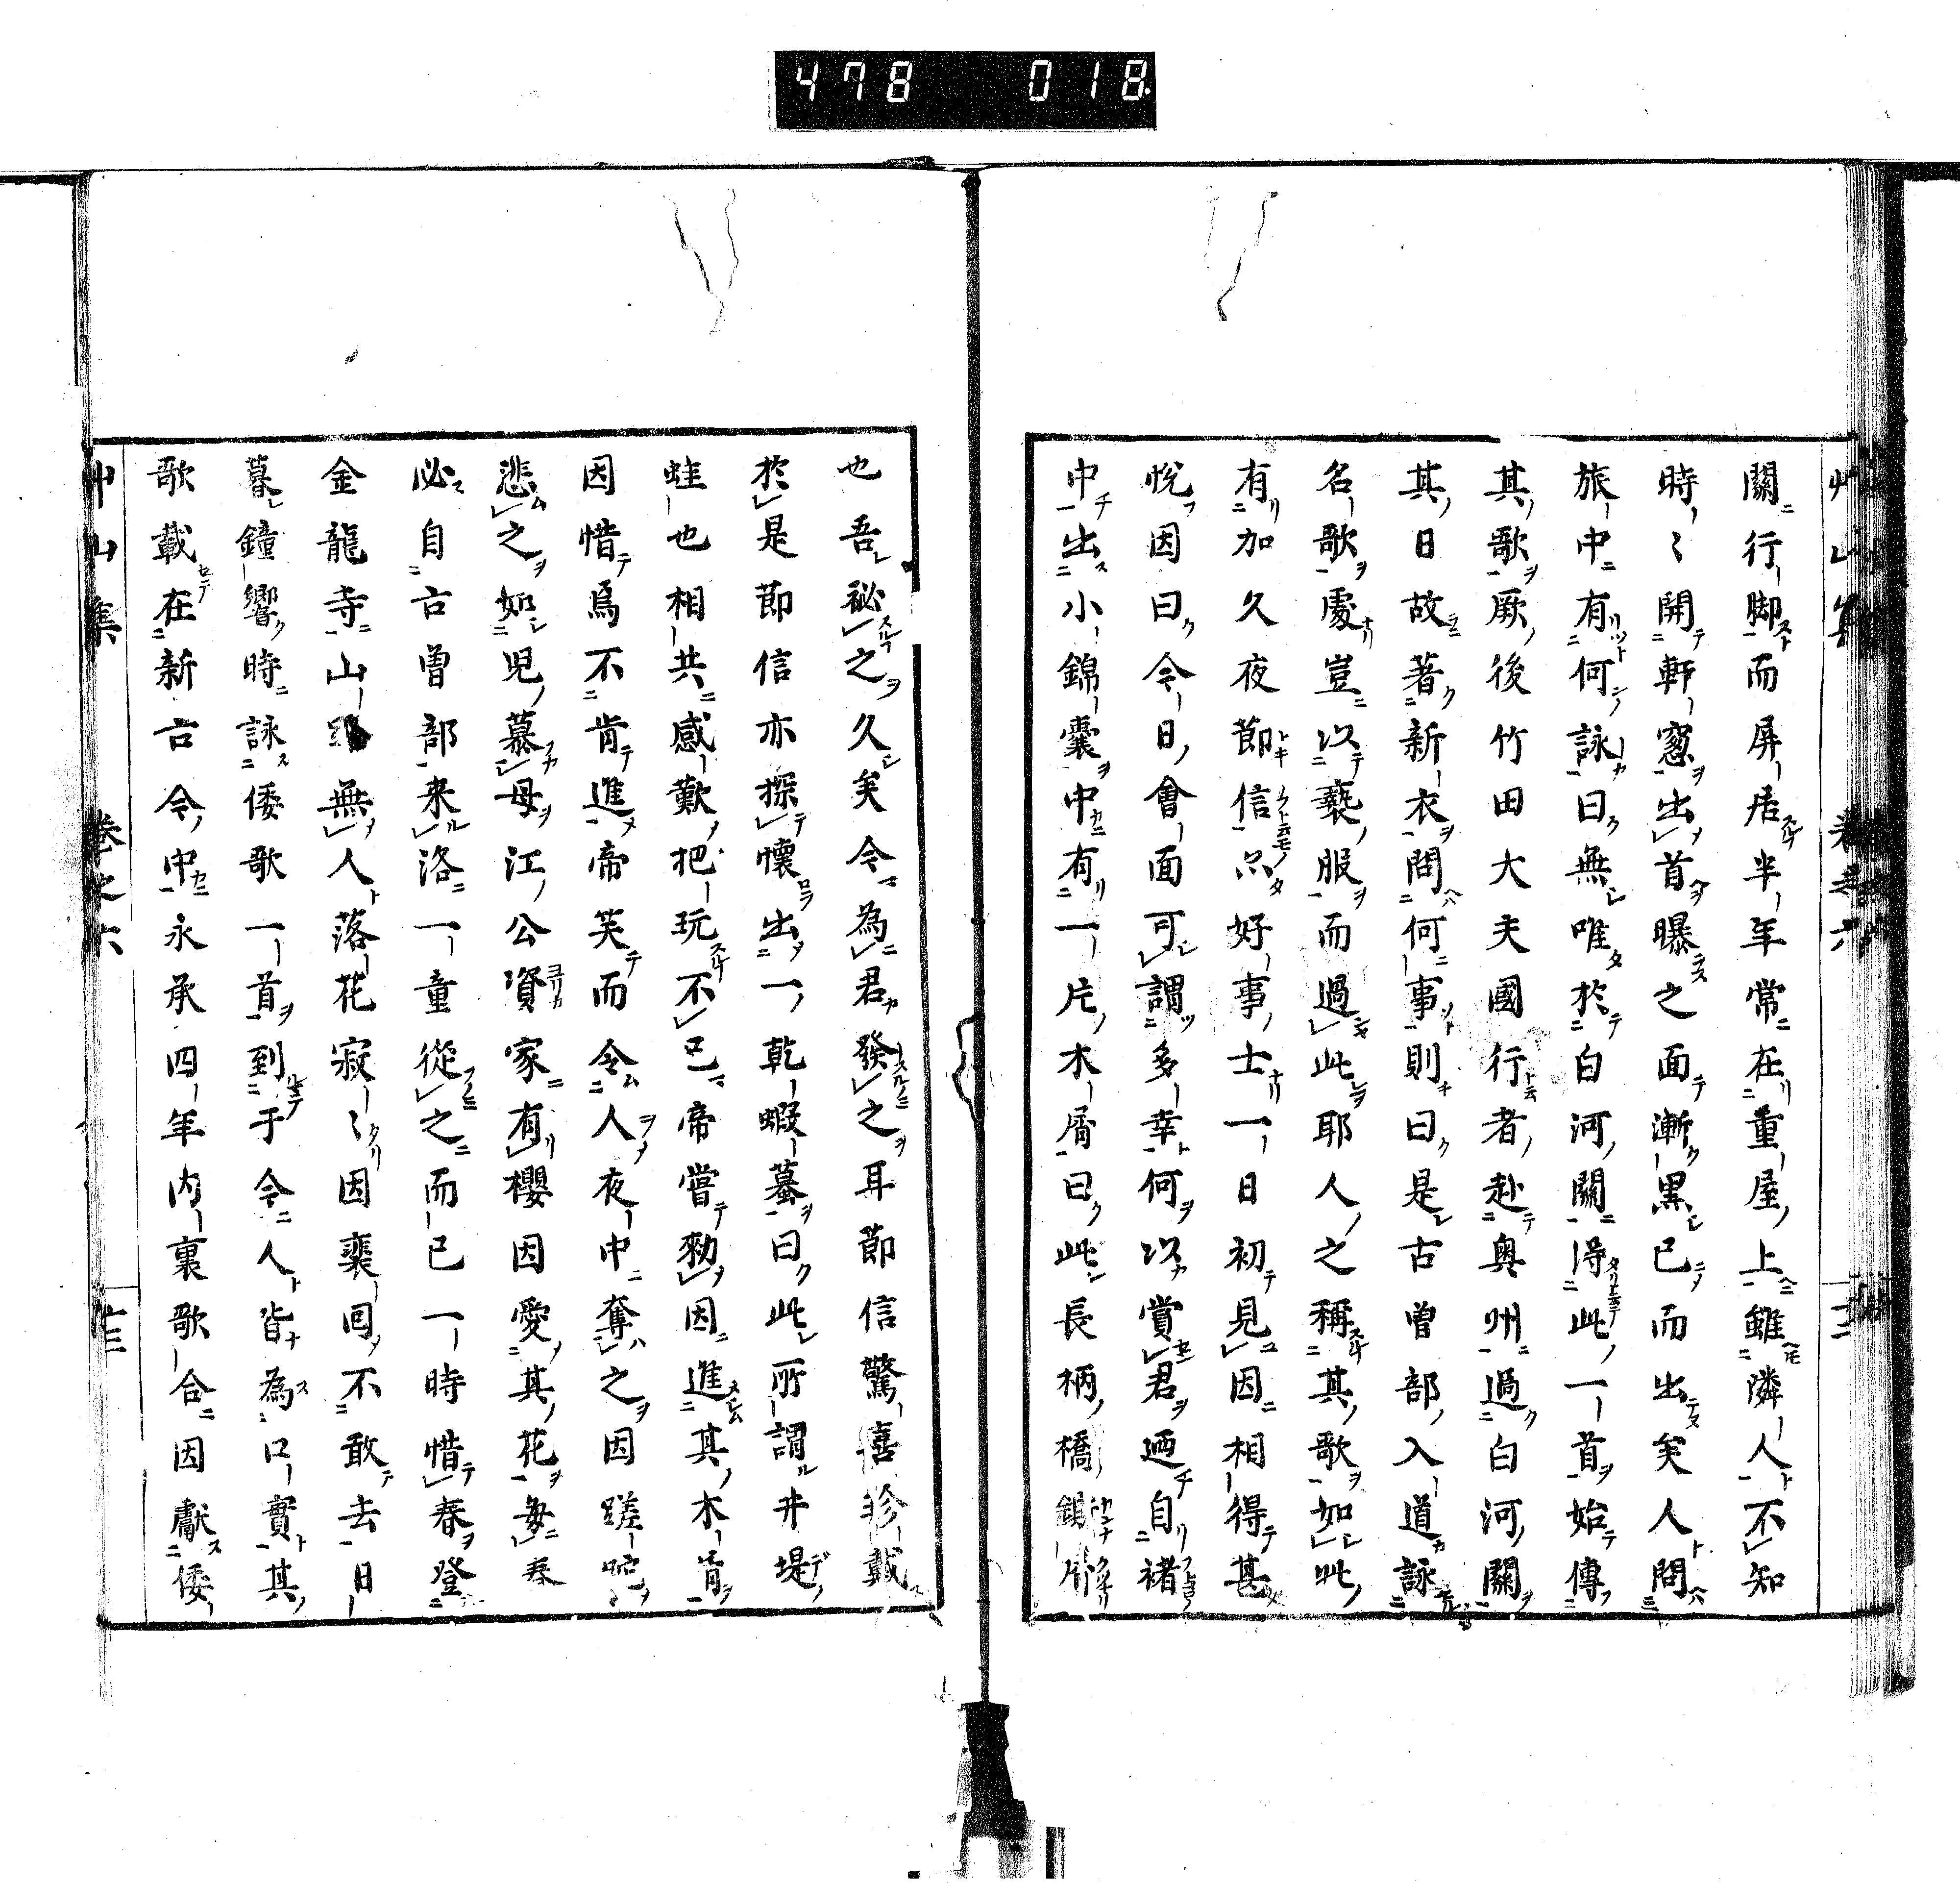 478 018
關行脚而屏居半年常在重屋上雖隣人不知
時〻開軒窓出首曝之面漸黒已而出矣人問
旅中有何詠曰無唯於白河關得此一首始傳
其歌厥後竹田大夫國行者赴奥州過白河關
其日故著新衣問何事則曰是古曽部入道詠
名歌處豈以褻服而過此耶人之稱其歌如此
有加久夜節信只好事士一日初見因相得甚
悅因曰今日會面可謂多幸何以賞君廼自褚
中出小錦囊中有一片木屑曰此長柄橋鉋屑
也吾祕之久矣今為君發之耳節信驚喜珍戴
於是節信亦探懷出一乾蝦蟇曰此所謂井堤
蛙也相共感歎把玩不已帝嘗勅因進其木屑
因惜焉不肯進帝笑而令人夜中奪之因蹉
悲之如児慕母江公資家有櫻因愛其花每春
必自古曽部来洛一童從之而已一時惜春登
金龍寺山無人落花寂〻因裵回不敢去日
暮鐘響時詠倭歌一首到于今人皆為口實其
歌載在新古今中永承四年内裏歌合因獻倭
艸山集 卷之六 廿三